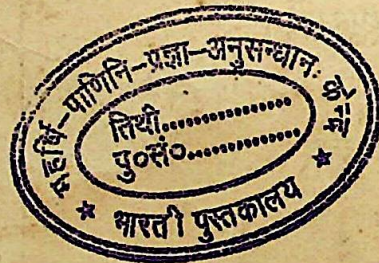 महर्षि-पाणिनि-प्रज्ञा-अनुसन्धानः केन्द्र
तिथी..................
पु०सं०..................
* भारती पुस्तकालय *